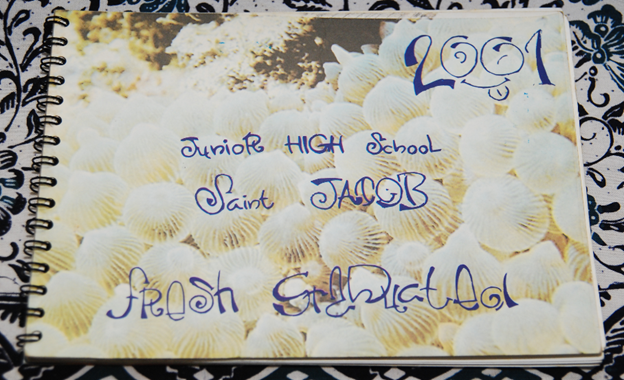 2001
Junior HIGH School
Saint JACOB
fresh Graduated